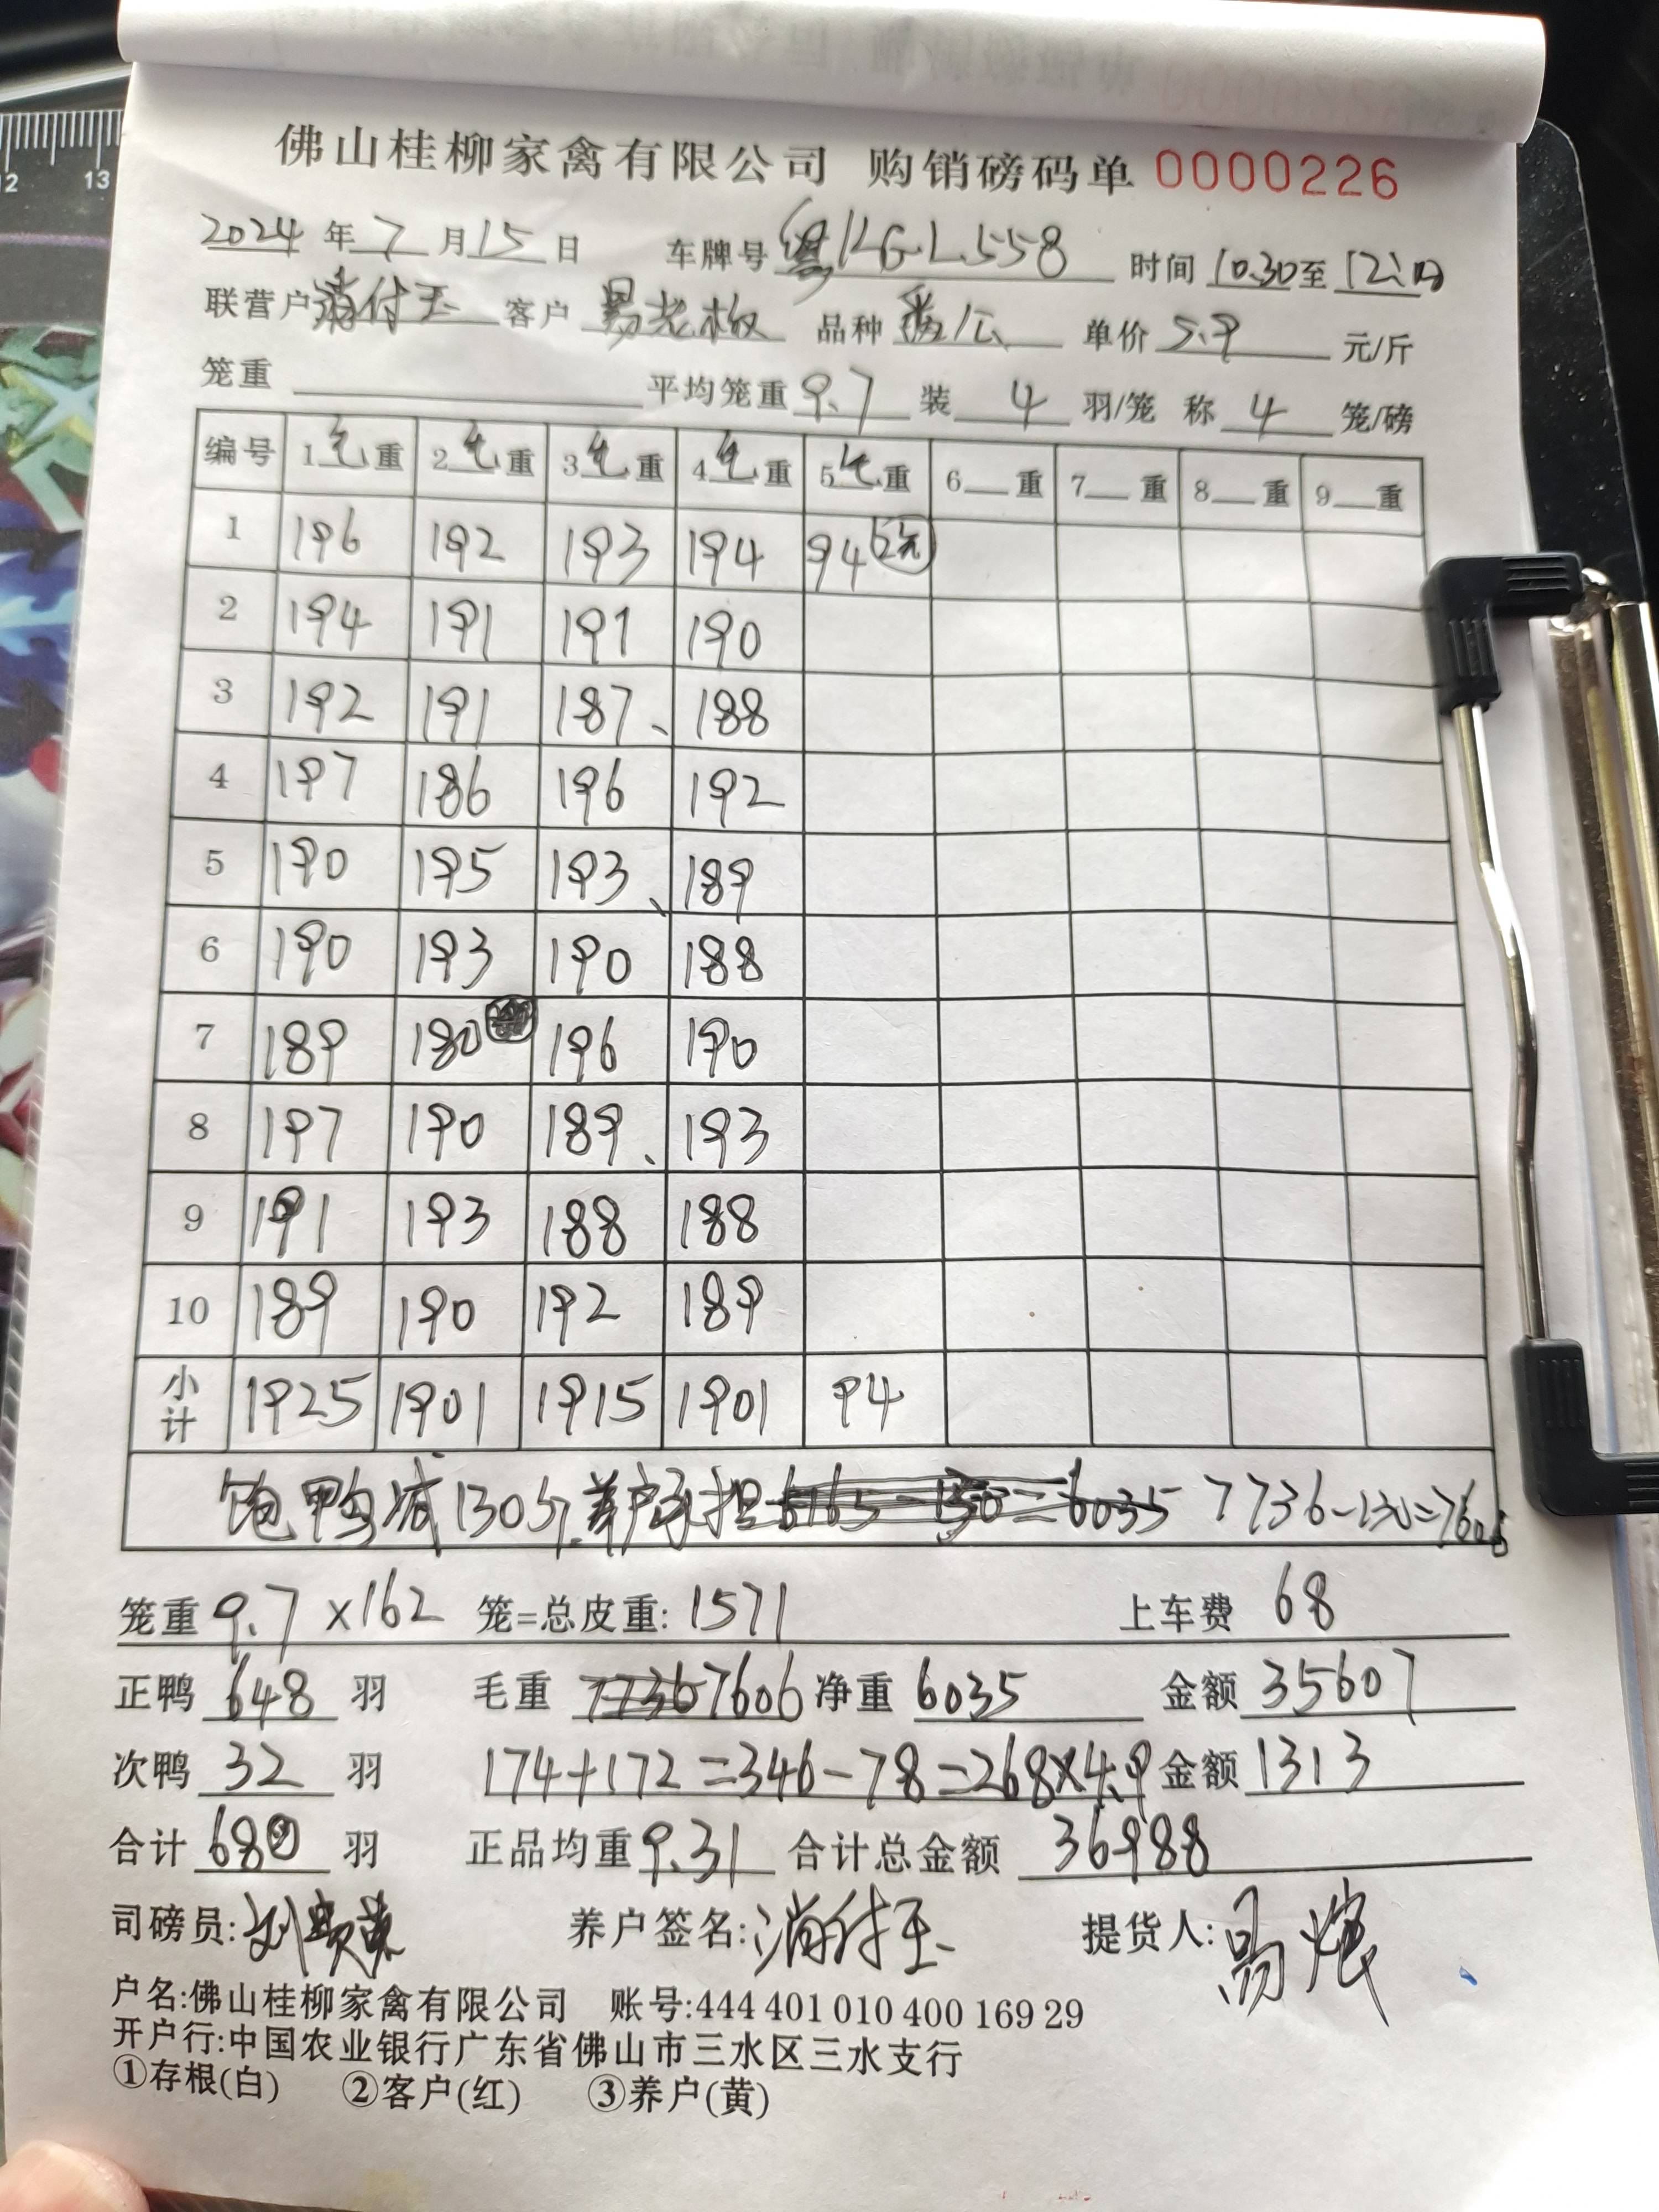 佛山桂柳家禽有限公司 购销磅码单 0000226
2024 年 7 月 15 日 车牌号 粤KGL558 时间 10.30 至
联营户 付玉 客户 易老板 品种 番公 单价 5.9 元/斤
笼重 平均笼重 9.7 装 4 羽/笼 称 4 笼/磅
编号 1毛重 2毛重 3毛重 4毛重 5毛重 6 重 7 重 8 重 9 重
1 196 192 193 194 94
2 194 191 191 190
3 192 191 187、 188
4 197 186 196 192
5 190 195 193、 189
6 190 193 190 188
7 189 180 196 190
8 197 190 189、 193
9 191 193 188 188
10 189 190 192 189
小计 1925 1901 1915 1901 94
饱鸭减130斤.养户承担 6165-130=6035 7736-130=7606
笼重 9.7 x162 笼=总皮重: 1571 上车费 68
正鸭 648 羽 毛重 7736 7606 净重 6035 金额 35607
次鸭 32 羽 174+172=346-78=268×4.9 金额 1313
合计 680 羽 正品均重 9.31 合计总金额 36988
司磅员: 养户签名: 付玉 提货人: 易
户名:佛山桂柳家禽有限公司 账号:444 401 010 400 169 29
开户行:中国农业银行广东省佛山市三水区三水支行
①存根(白) ②客户(红) ③养户(黄)
12 13